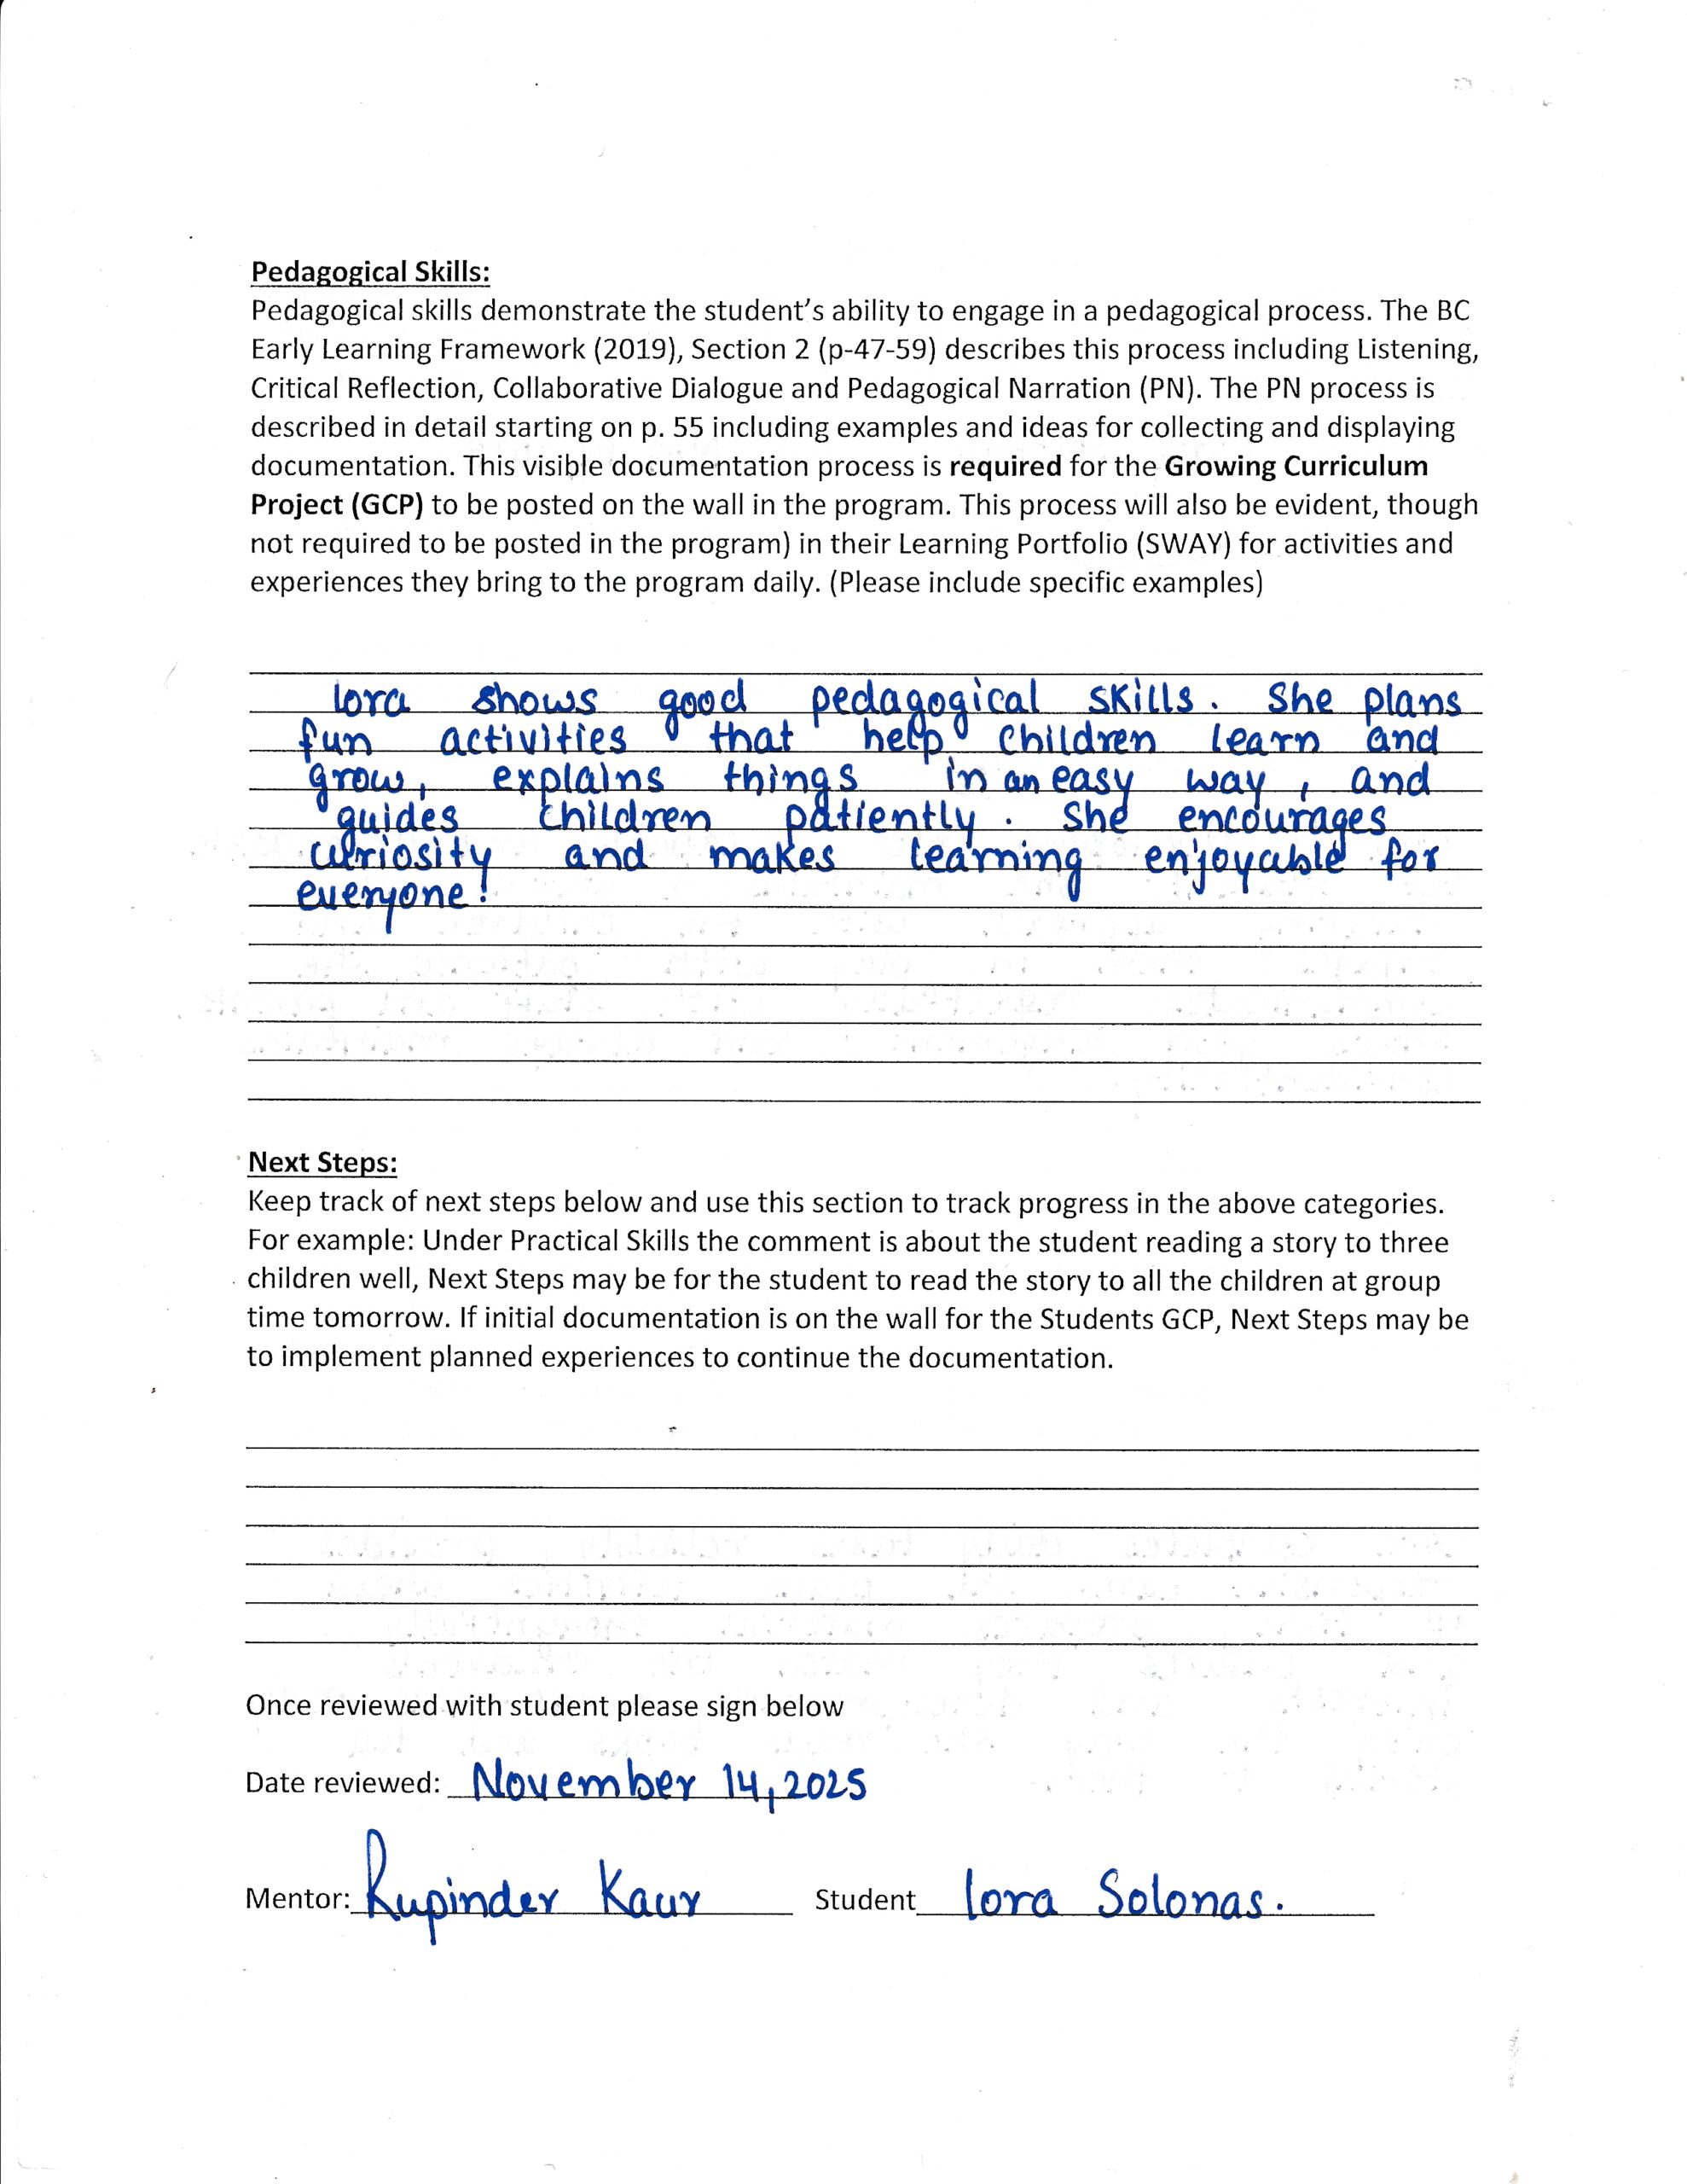 Pedagogical Skills:
Pedagogical skills demonstrate the student's ability to engage in a pedagogical process. The BC
Early Learning Framework (2019), Section 2 (p-47-59) describes this process including Listening,
Critical Reflection, Collaborative Dialogue and Pedagogical Narration (PN). The PN process is
described in detail starting on p. 55 including examples and ideas for collecting and displaying
documentation. This visible documentation process is required for the Growing Curriculum
Project (GCP) to be posted on the wall in the program. This process will also be evident, though
not required to be posted in the program) in their Learning Portfolio (SWAY) for activities and
experiences they bring to the program daily. (Please include specific examples)
lora shows good pedagogical skills. She plans
fun activities that help children learn and
grow, explains things in an easy way, and
guides children patiently. She encourages
curiosity and makes learning enjoyable for
everyone!
Next Steps:
Keep track of next steps below and use this section to track progress in the above categories.
For example: Under Practical Skills the comment is about the student reading a story to three
children well, Next Steps may be for the student to read the story to all the children at group
time tomorrow. If initial documentation is on the wall for the Students GCP, Next Steps may be
to implement planned experiences to continue the documentation.
Once reviewed with student please sign below
Date reviewed: November 14, 2025
Mentor: Rupinder Kaur Student lora Solonas.